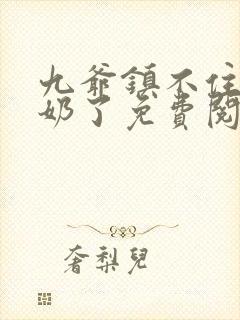 九爺鎮不住
奶了免費閱
奢梨兒